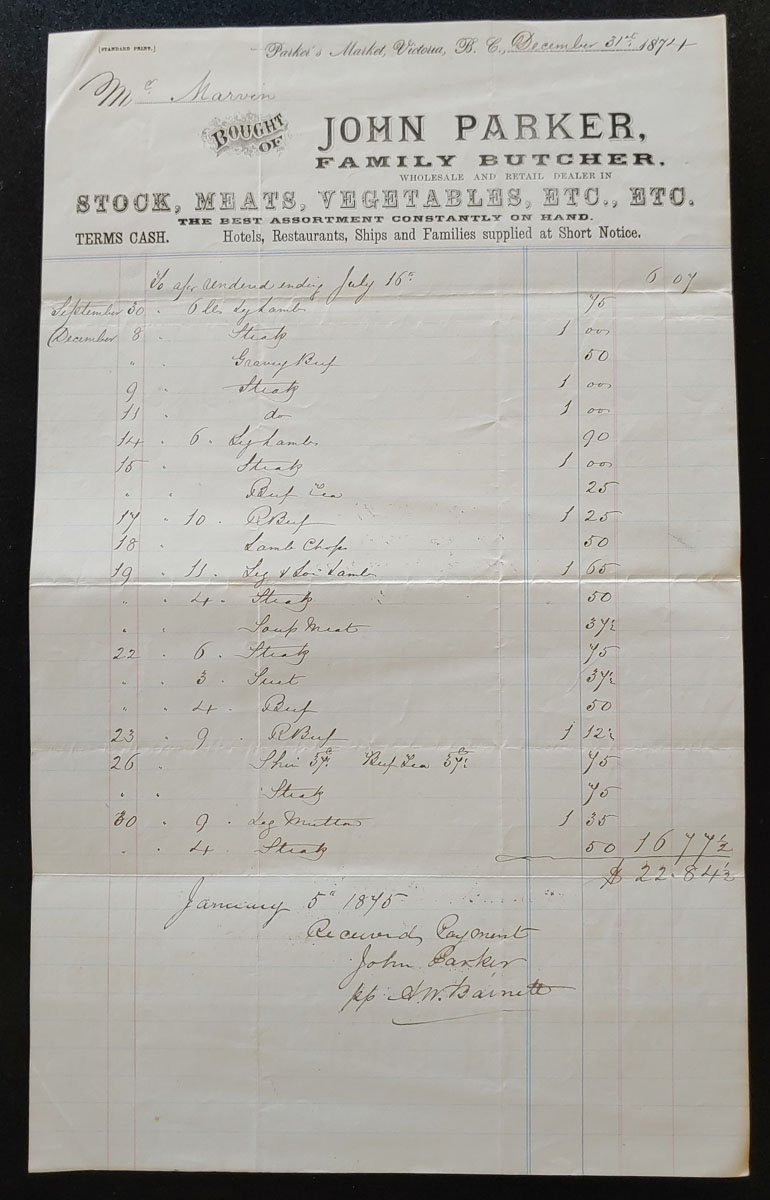 [STANDARD PRINT.]
Parker's Market, Victoria, B. C., December 31st 1874
Mr Marven
BOUGHT OF
JOHN PARKER,
FAMILY BUTCHER.
WHOLESALE AND RETAIL DEALER IN
STOCK, MEATS, VEGETABLES, ETC., ETC.
THE BEST ASSORTMENT CONSTANTLY ON HAND.
TERMS CASH. Hotels, Restaurants, Ships and Families supplied at Short Notice.
To a/c rendered ending July 16th 6 07
September 30 " 6 lbs Leg Lamb 75
December 8 " Steak 1 00
" " Gravy Beef 50
9 " Steak 1 00
11 " do 1 00
14 " 6 " Leg Lamb 90
15 " Steak 1 00
" " Beef Tea 25
17 " 10 " R Beef 1 25
18 " Lamb Chops 50
19 " 11 " Leg & Loin Lamb 1 65
" " 4 " Steak 50
" " Soup Meat 37½
22 " 6 " Steak 75
" " 3 " Suet 37½
" " 4 " Beef 50
23 " 9 " R Beef 1 12½
26 " Shin 37½ Beef Tea 37½ 75
" " Steak 75
30 " 9 " Leg Mutton 1 35
" " 4 " Steak 50 16 77½
$ 22.84½
January 5th 1875
Received Payment
John Parker
pp A W. Barnett